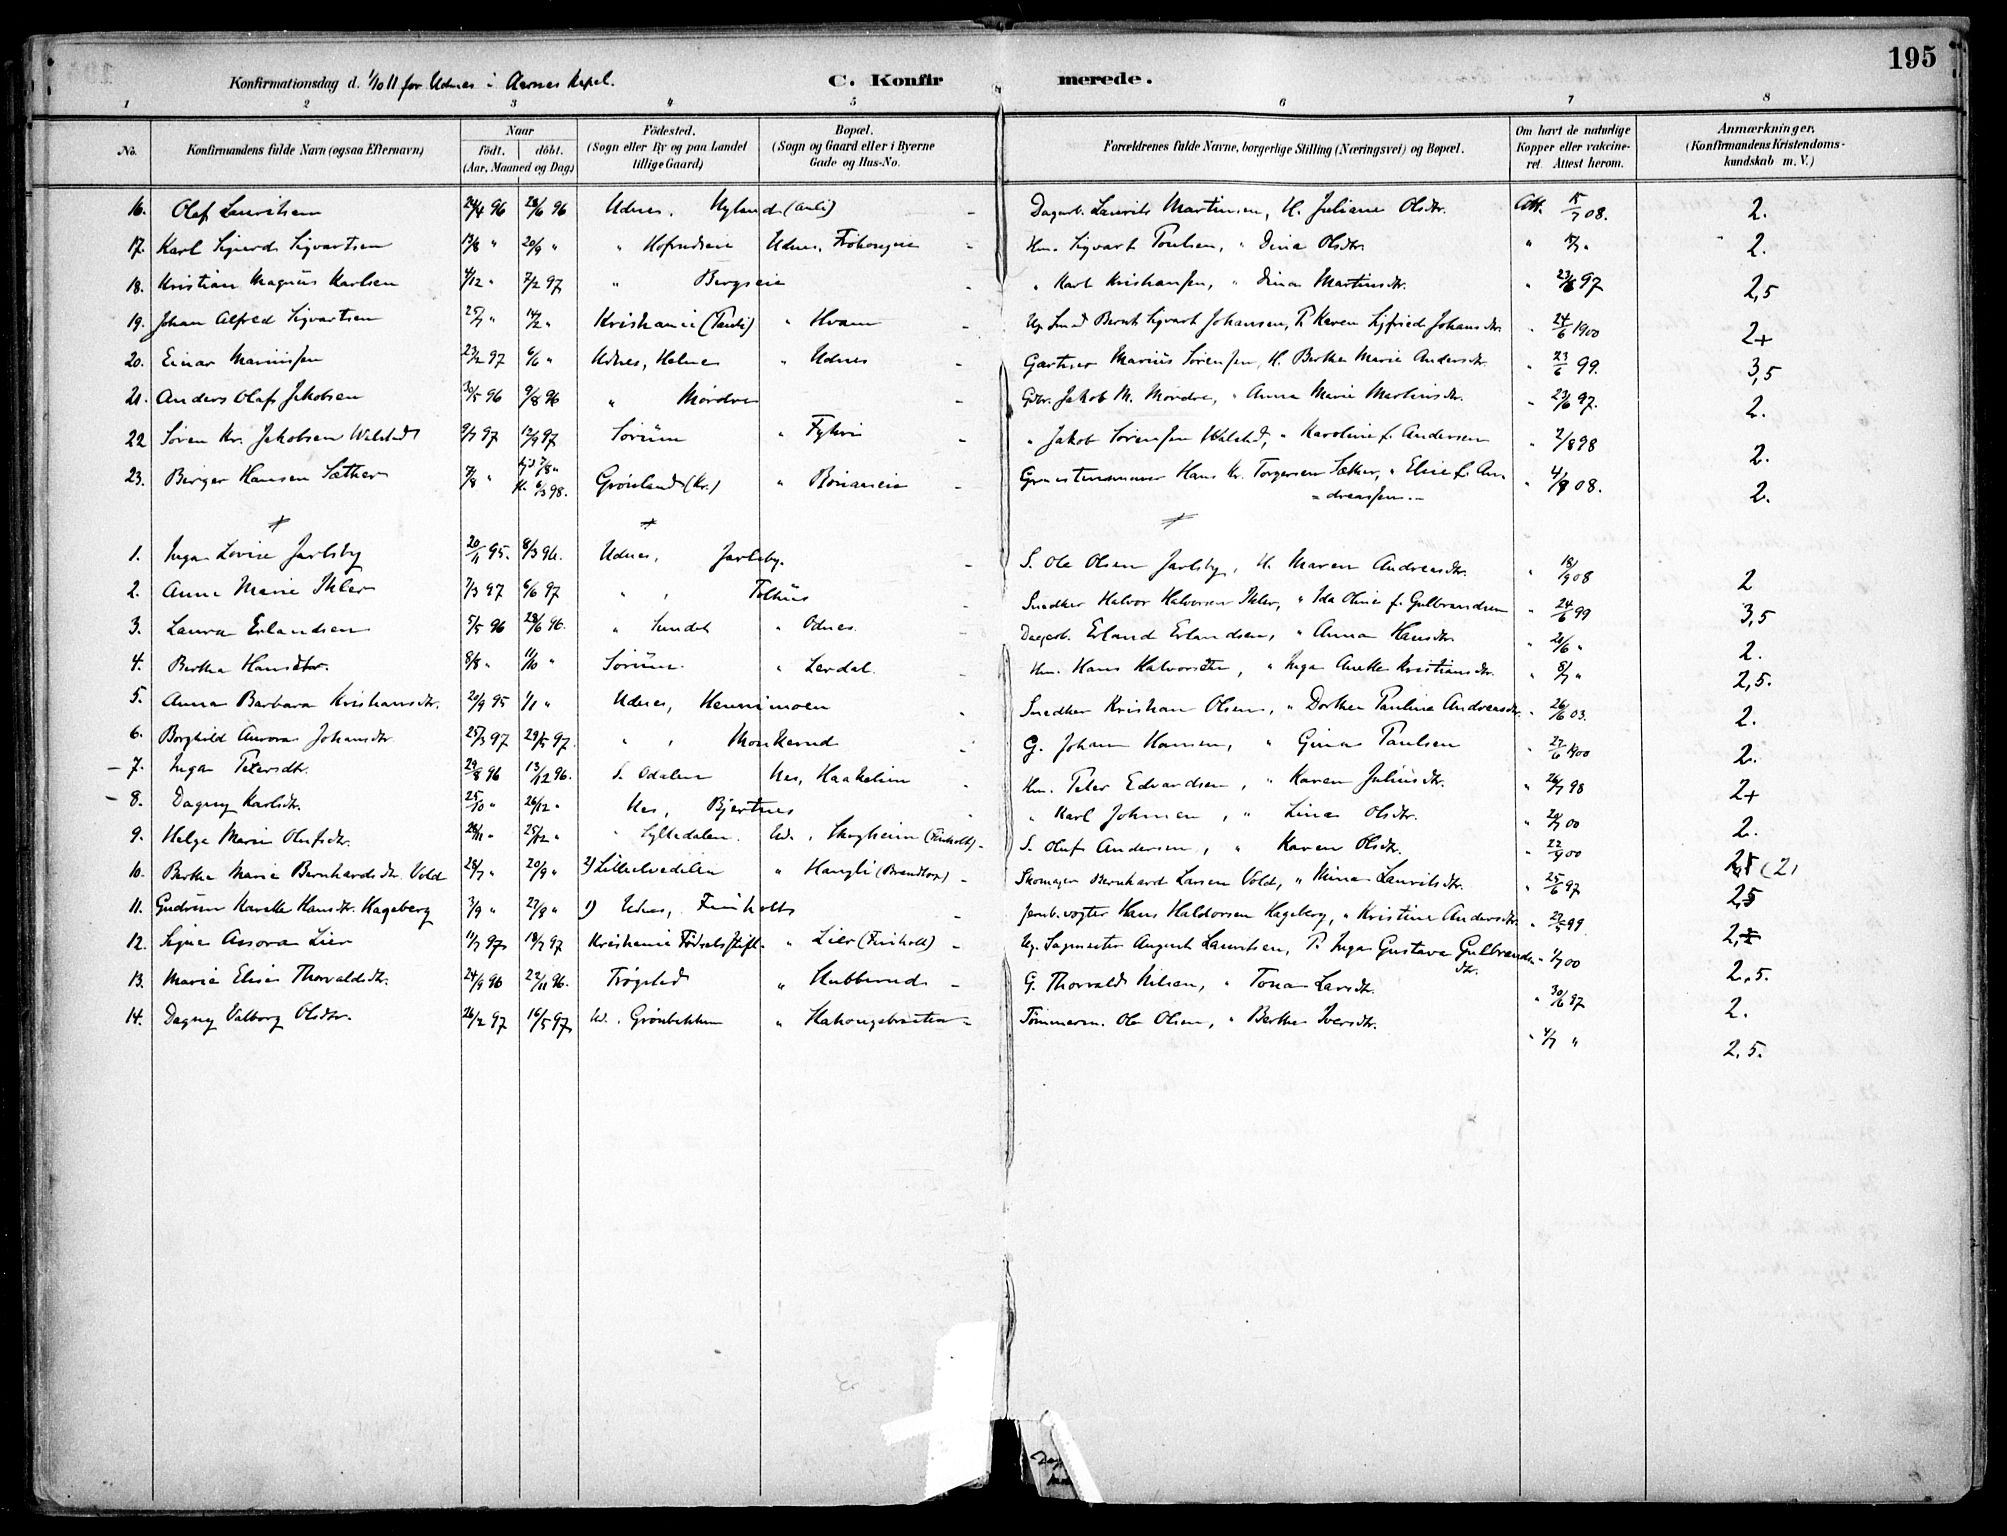 195
Konfirmationsdag d. 1/10 11 for Udnes i Aarnes Kapel.
C. Konfirmerede.
1 2 3 4 5 6 7 8
No. Konfirmandens fulde Navn (ogsaa Efternavn) Naar födt. döbt. (Aar, Maaned og Dag) Födested. (Sogn eller By og paa Landet tillige Gaard) Bopæl. (Sogn og Gaard eller i Byerne Gade og Hus-No. Forældrenes fulde Navne, borgerlige Stilling (Næringsvei) og Bopæl. Om havt de naturlige Kopper eller vakcineret. Attest herom. Anmærkninger. (Konfirmandens Kristendomskundskab m. V.)
16. Olaf Lauritsen 24/4 96 28/6 96 Udnes, Nyland (Auli) - Dagarb. Laurits Martinsen, H. Juliane Olsdtr. Att. 15/7 08. 2.
17. Karl Sigurd Sigvartsen 13/8 " 20/9 " " Hofrudseie Udnes, - Hm. Sigvart Poulsen, " Dina Olsdtr. " 15/7 " 2.
18. Kristian Magnus Karlsen 4/12 " 7/2 97 " Bergseie - " Karl Kristiansen, " Dina Martinsdtr. " 23/6 97 2,5
19. Johan Alfred Sigvartsen 25/7 " 14/2 " Kristiania (Pauli) " Hvam - Ug. Smed Bernt Sigvart Johansen, P. Karen Sigfried Johansdtr. " 24/6 1900 2+
20. Einar Mariussen 23/2 97 6/6 " Udnes, Helnes " Udnes - Gartner Marius Sørensen, H. Berthe Marie Andersdtr. " 23/6 99. 3,5
21. Anders Olaf Jakobsen 30/5 96 9/8 96 " Mørdre - Gbr. Jakob M. Mørdre, " Anna Marie Martinsdtr. " 23/6 97. 2.
22 Søren Kr. Jakobsen Walstad 9/7 97 12/9 97 Sørum " - " Jakob Sørensen Walstad, " Karoline f. Andersen " 2/8 98 2.
23. Birger Hansen Sæther 7/8 " hjd 7/8 " K. 6/3 98. Grønland (Kr.) " - Hans Kr. Torgersen Sæther, " Elise f. An-
= dreassen. - " 4/9 08. 2.
1. Inga Lovise Jarlsby 20/11 95. 8/3 96. Udnes, Jarlsby. - S. Ole Olsen Jarlsby, H. Maren Andreasdtr. " 18/9 08 2
2. Anna Marie Ihler 7/3 97 6/6 97 " , Folhus - Snedker Halvor Halvorsen Ihler, " Ida Oline f. Gulbrandsen " 24/6 99 3,5
3. Laura Erlandsen 5/5 96 28/6 96. " Sundet " Odnes. - Dagarb. Erland Erlandsen, " Anna Hansdtr. " 26/6 " 2.
4. Berthe Hansdtr. 8/8 " 11/10 " Sørum. " Lerdal. - Hm. Hans Halvorsen, " Inga Anette Kristiansdtr. " 8/7 " 2,5.
5. Anna Barbara Kristiansdtr. 20/9 95 1/1 " Udnes, Hennimoen - Snedker Kristian Olsen, " Dorthea Pauline Andreasdtr. " 26/6 03. 2.
6. Borghild Aurora Johansdtr. 25/3 97 29/5 97. " , Monkerud - G. Johan Hansen, " Gina Paulsen " 27/6 1900 2.
- 7. Inga Petersdtr. 29/8 96 13/12 96. S. Odalen Nes, Haakelien - Hm. Peter Edvardsen, " Karen Juliusdtr. " 26/7 98 2+
- 8. Dagny Karlsdtr. 25/10 " 26/12 " Nes, Bjertnes - " Karl Johnsen, " Lina Olsdtr. " 20/7 00 2.
9. Helga Marie Olufsdtr. 28/11 " 25/12 " " Syltedalen. Ud., Skogheim (Finholt) - S. Oluf Andersen, " Karen Olsdtr. " 22/9 00 2,5 (2)
10. Berthe Marie Bernhardsdtr. Vold 28/7 " 20/9 " 2) Lilleelvedalen " Haugli (Brandtorp) - Skomager Bernhard Larsen Vold, " Mina Lauritsdtr. " 25/6 97 2,5
11. Gudrun Marethe Hansdtr. Hageberg 3/9 " 27/9 " 1) Udnes, Finholts - Jernb.vogter Hans Haldorsen Hageberg, " Kristine Andersdtr. " 27/5 99. 2,
12. Signe Assora Lier 11/7 97 18/7 97 Kristiania Födselsstift. " Lier (Finholt) - Ug. Sagmester August Lauritsen, P. Inga Gustava Gulbrands-
dtr. " 1/7 00 2,5.
13. Marie Elise Thorvaldsdtr. 24/9 96 22/11 96. Trøgstad " Hubberud - G. Thorvald Nilsen, " Tona Larsdtr. " 30/6 97 2.
14. Dagny Valborg Olsdtr. 26/2 97 16/5 97 Ud. Grønbekken " - Tømmerm. Ole Olsen, " Berthe Iversdtr. " 4/7 " 2,5.